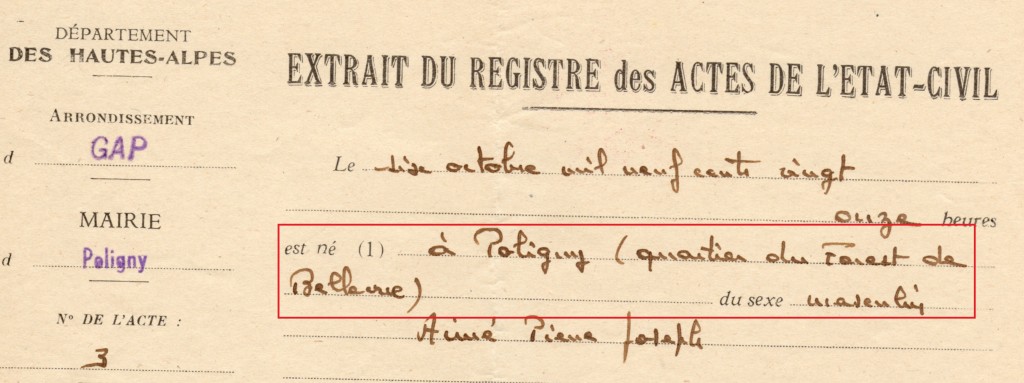 DÉPARTEMENT
DES HAUTES-ALPES
ARRONDISSEMENT
d GAP
MAIRIE
d Poligny
N° DE L'ACTE :
3
EXTRAIT DU REGISTRE des ACTES DE L'ETAT-CIVIL
Le size octobre mil neuf cents vingt
onze heures
est né (1) à Poligny (quartier du Forest de
Bellevue) du sexe masculin
Aimé Pierre Joseph